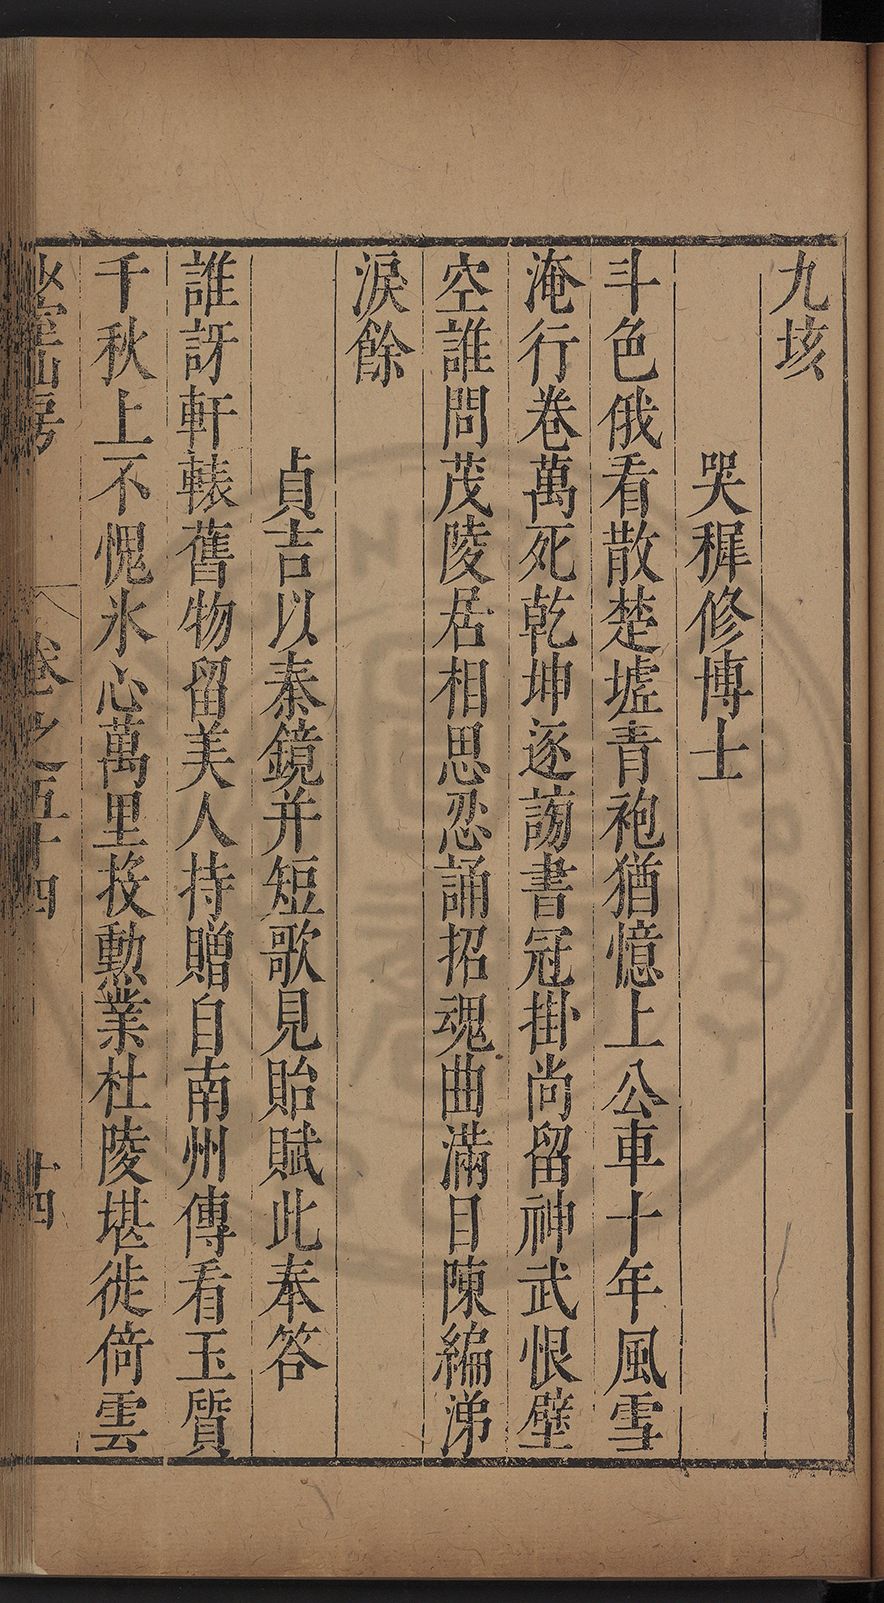 九垓
哭穉修博士
斗色俄看散楚墟青袍猶憶上公車十年風雪
淹行卷萬死乾坤逐謗書冠掛尚留神武恨壁
空誰問茂陵居相思忍誦招魂曲滿目陳編涕
淚餘
貞吉以秦鏡并短歌見貽賦此奉答
誰訝軒轅舊物留美人持贈自南州傳看玉質
千秋上不愧氷心萬里投勲業杜陵堪徙倚雲
卷之五十四
十四